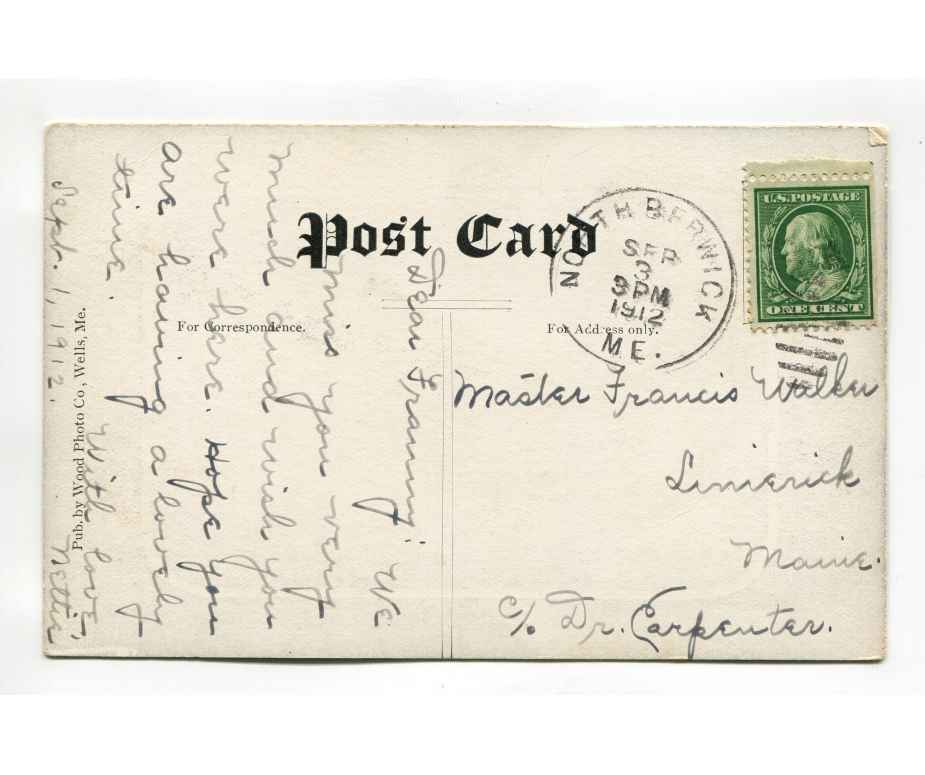 Post Card
For Correspondence.
For Address only.
Pub. by Wood Photo Co., Wells, Me.
NORTH BERWICK
SEP
3
3 PM
1912
ME.
U.S. POSTAGE
ONE CENT
Dear Franny" We
miss you very
much and wish you
were here. Hope you
are having a lovely
time.
With love,
Sept. 1, 1912. Nettie
Master Francis Walker
Limerick
Maine.
c/o Dr. Carpenter.